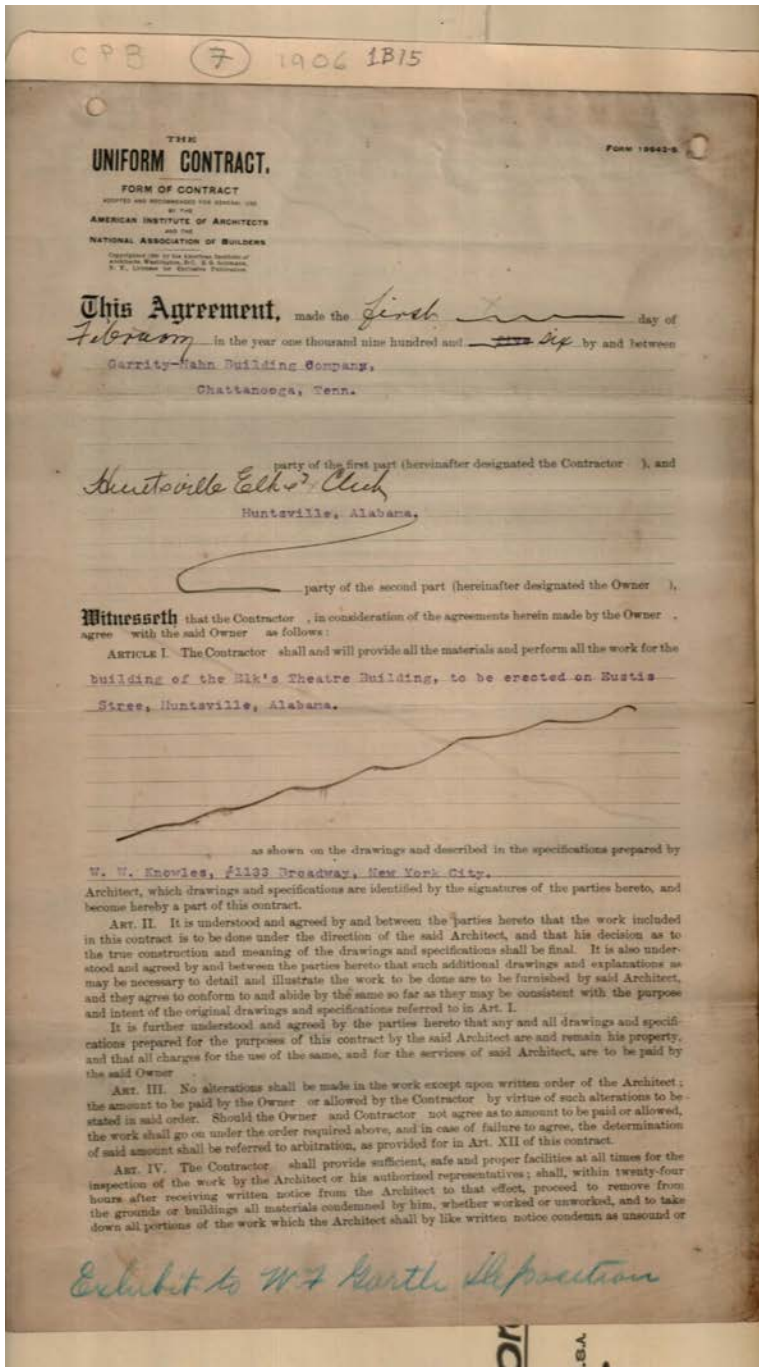 CPB 7 1906 1B15
THE
UNIFORM CONTRACT,
FORM OF CONTRACT
ADOPTED AND RECOMMENDED FOR GENERAL USE
BY THE
AMERICAN INSTITUTE OF ARCHITECTS
AND THE
NATIONAL ASSOCIATION OF BUILDERS
FORM
This Agreement, made the first day of
February in the year one thousand nine hundred and five six by and between
Garrity-Hahn Building Company,
Chattanooga, Tenn.
party of the first part (hereinafter designated the Contractor ), and
Huntsville Elks' Club
Huntsville, Alabama.
party of the second part (hereinafter designated the Owner ),
Witnesseth that the Contractor , in consideration of the agreements herein made by the Owner ,
agree with the said Owner as follows :
ARTICLE I. The Contractor shall and will provide all the materials and perform all the work for the
building of the Elk's Theatre Building, to be erected on Eustis
Stree, Huntsville, Alabama.
as shown on the drawings and described in the specifications prepared by
W. W. Knowles, #1133 Broadway, New York City.
Architect, which drawings and specifications are identified by the signatures of the parties hereto, and
become hereby a part of this contract.
ART. II. It is understood and agreed by and between the parties hereto that the work included
in this contract is to be done under the direction of the said Architect, and that his decision as to
the true construction and meaning of the drawings and specifications shall be final. It is also under-
stood and agreed by and between the parties hereto that such additional drawings and explanations as
may be necessary to detail and illustrate the work to be done are to be furnished by said Architect,
and they agree to conform to and abide by the same so far as they may be consistent with the purpose
and intent of the original drawings and specifications referred to in Art. I.
It is further understood and agreed by the parties hereto that any and all drawings and specifi-
cations prepared for the purposes of this contract by the said Architect are and remain his property,
and that all charges for the use of the same, and for the services of said Architect, are to be paid by
the said Owner .
ART. III. No alterations shall be made in the work except upon written order of the Architect ;
the amount to be paid by the Owner or allowed by the Contractor by virtue of such alterations to be
stated in said order. Should the Owner and Contractor not agree as to amount to be paid or allowed,
the work shall go on under the order required above, and in case of failure to agree, the determination
of said amount shall be referred to arbitration, as provided for in Art. XII of this contract.
ART. IV. The Contractor shall provide sufficient, safe and proper facilities at all times for the
inspection of the work by the Architect or his authorized representatives ; shall, within twenty-four
hours after receiving written notice from the Architect to that effect, proceed to remove from
the grounds or buildings all materials condemned by him, whether worked or unworked, and to take
down all portions of the work which the Architect shall by like written notice condemn as unsound or
Exhibit to W F Garth Deposition